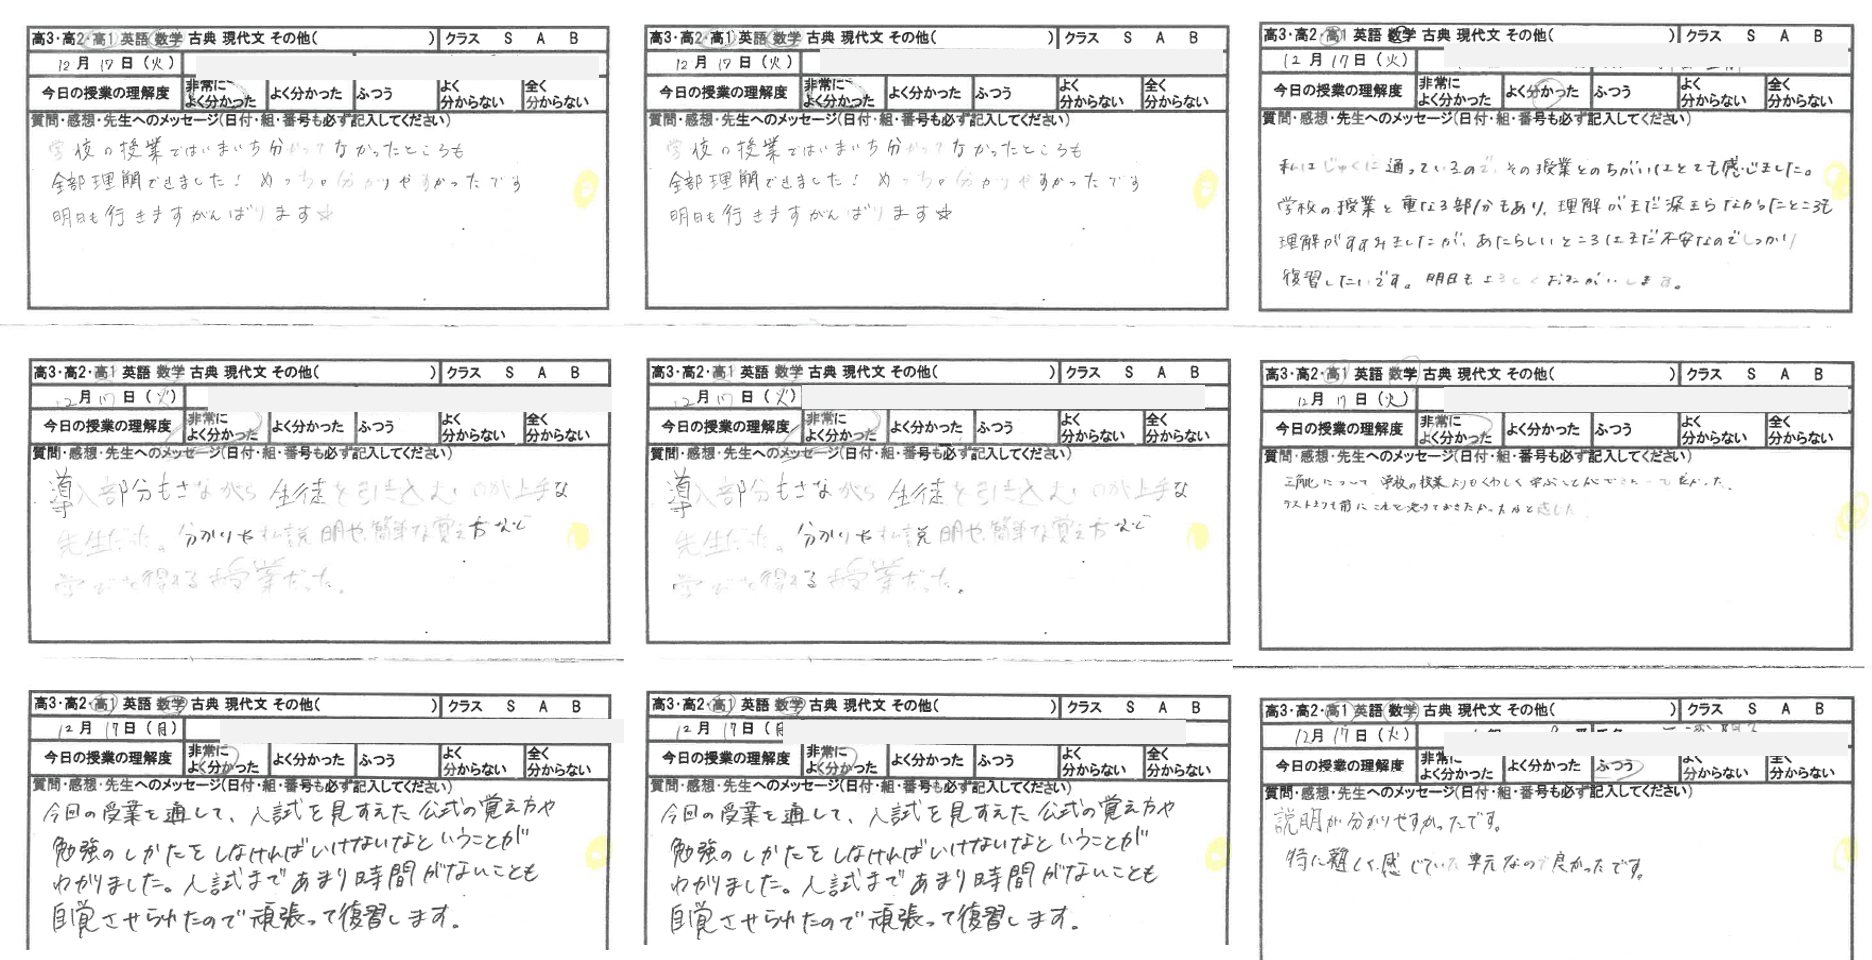 高3・高2・高1 英語 数学 古典 現代文 その他( ) クラス S A B
12月17日(火)
今日の授業の理解度 非常によく分かった よく分かった ふつう よく分からない 全く分からない
質問・感想・先生へのメッセージ(日付・組・番号も必ず記入してください)
学校の授業ではいまいち分かってなかったところも
全部理解できました! めっちゃ分かりやすかったです
明日も行きますがんばります☆
高3・高2・高1 英語 数学 古典 現代文 その他( ) クラス S A B
12月17日(火)
今日の授業の理解度 非常によく分かった よく分かった ふつう よく分からない 全く分からない
質問・感想・先生へのメッセージ(日付・組・番号も必ず記入してください)
学校の授業ではいまいち分かってなかったところも
全部理解できました! めっちゃ分かりやすかったです
明日も行きますがんばります☆
高3・高2・高1 英語 数学 古典 現代文 その他( ) クラス S A B
12月17日(火)
今日の授業の理解度 非常によく分かった よく分かった ふつう よく分からない 全く分からない
質問・感想・先生へのメッセージ(日付・組・番号も必ず記入してください)
私はじゅくに通っているので、その授業とのちがいはとても感じました。
学校の授業と重なる部分もあり、理解がまだ深まらなかったところも
理解がすすみましたが、あたらしいところはまだ不安なのでしっかり
復習したいです。明日もよろしくおねがいします。
高3・高2・高1 英語 数学 古典 現代文 その他( ) クラス S A B
12月17日(火)
今日の授業の理解度 非常によく分かった よく分かった ふつう よく分からない 全く分からない
質問・感想・先生へのメッセージ(日付・組・番号も必ず記入してください)
導入部分もさながら生徒を引き込むのが上手な
先生だった。分かりやすい説明や簡単な覚え方など
学びを得れる授業だった。
高3・高2・高1 英語 数学 古典 現代文 その他( ) クラス S A B
12月17日(火)
今日の授業の理解度 非常によく分かった よく分かった ふつう よく分からない 全く分からない
質問・感想・先生へのメッセージ(日付・組・番号も必ず記入してください)
導入部分もさながら生徒を引き込むのが上手な
先生だった。分かりやすい説明や簡単な覚え方など
学びを得れる授業だった。
高3・高2・高1 英語 数学 古典 現代文 その他( ) クラス S A B
12月17日(火)
今日の授業の理解度 非常によく分かった よく分かった ふつう よく分からない 全く分からない
質問・感想・先生へのメッセージ(日付・組・番号も必ず記入してください)
三角比について学校の授業よりくわしく学ぶことができて良かった。
テストよりも前にこれを知っておきたかったなと感じた
高3・高2・高1 英語 数学 古典 現代文 その他( ) クラス S A B
12月17日(月)
今日の授業の理解度 非常によく分かった よく分かった ふつう よく分からない 全く分からない
質問・感想・先生へのメッセージ(日付・組・番号も必ず記入してください)
今回の授業を通して、入試を見すえた公式の覚え方や
勉強のしかたをしなければいけないなということが
わかりました。入試まであまり時間がないことも
自覚させられたので頑張って復習します。
高3・高2・高1 英語 数学 古典 現代文 その他( ) クラス S A B
12月17日(月
今日の授業の理解度 非常によく分かった よく分かった ふつう よく分からない 全く分からない
質問・感想・先生へのメッセージ(日付・組・番号も必ず記入してください)
今回の授業を通して、入試を見すえた公式の覚え方や
勉強のしかたをしなければいけないなということが
わかりました。入試まであまり時間がないことも
自覚させられたので頑張って復習します。
高3・高2・高1 英語 数学 古典 現代文 その他( ) クラス S A B
12月17日(火)
今日の授業の理解度 非常によく分かった よく分かった ふつう よく分からない 全く分からない
質問・感想・先生へのメッセージ(日付・組・番号も必ず記入してください)
説明が分かりやすかったです。
特に難しく感じていた単元なので良かったです。